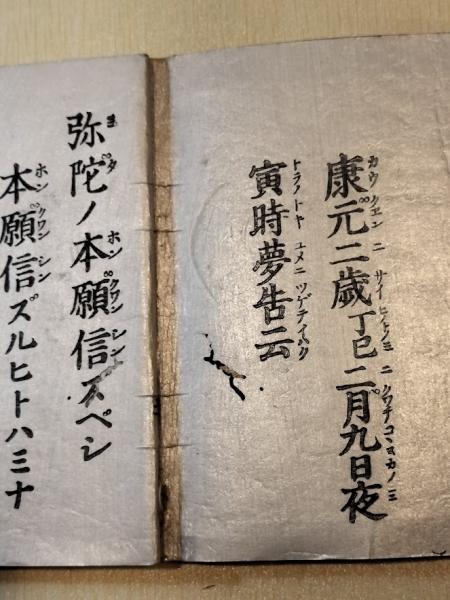 康元二歳丁巳二月九日夜
寅時夢告云
弥陀ノ本願信ズベシ
本願信ズルヒトハミナ